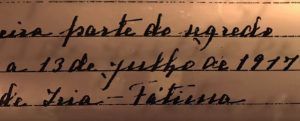 eira parte do segredo
a 13 de julho de 1917
de Iria - Fátima